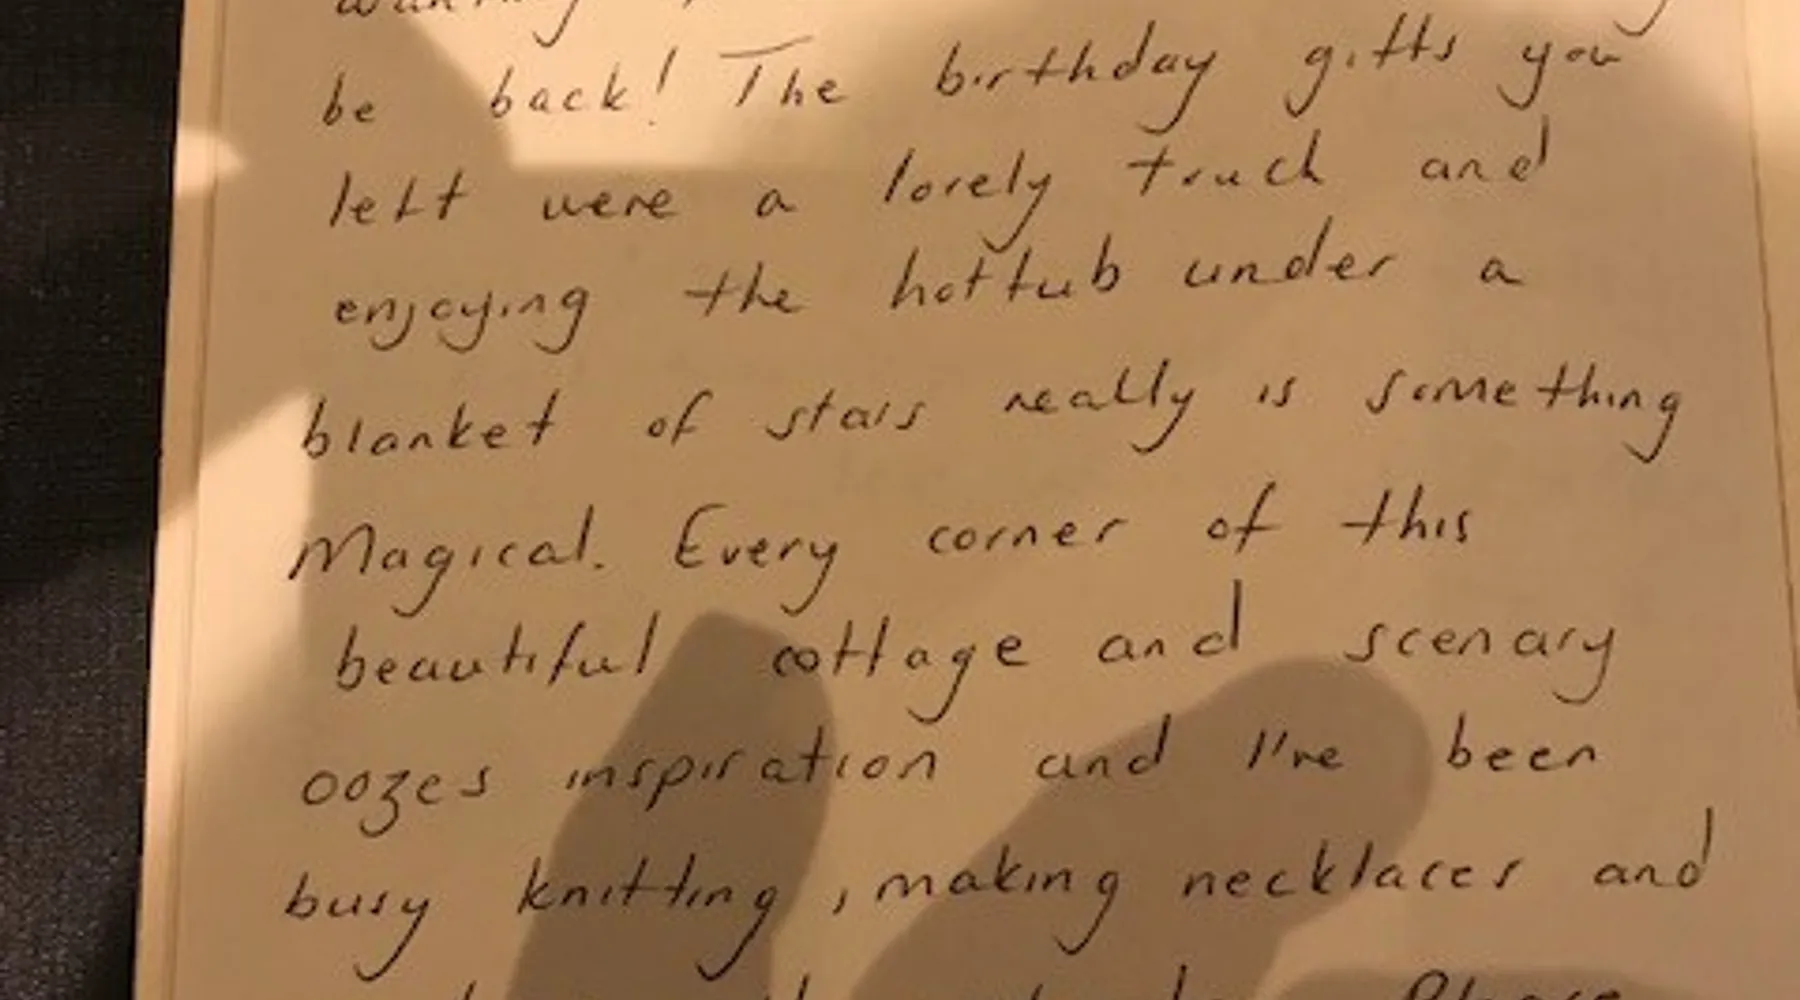 be back! The birthday gifts you
left were a lovely touch and
enjoying the hottub under a
blanket of stars really is something
Magical. Every corner of this
beautiful cottage and scenary
oozes inspiration and I've been
busy knitting, making necklaces and
Please